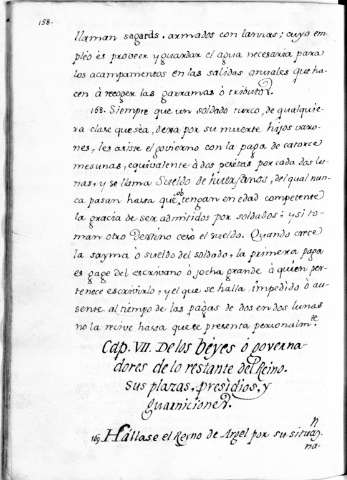 158.
llaman sagards, armados con lanzas; cuyo em-
pléo és proveer y guardar el agua necesaria para
los acampamentos en las salidas anuales que ha-
cen à recoger las garramas ò tributos.
168. Siempre que un soldado turco, de qualquie-
ra clase que séa, dexa por su muerte hijos varo-
nes, les asiste el govierno con la paga de catorce
mesunas, equivalente à dos pesetas por cada dos lu-
nas, y se llama Sueldo de huerfanos, del qual nun-
ca pasan hasta que tengan en edad competente
la gracia de ser admitidos por soldados; y si to-
man otro destino cesa el sueldo. Quando crece
la sayma ò sueldo del soldado, la primera paga
es gage del escrivano ò jocha grande à quien per-
tenece escrivirlo, y el que se halla impedido ò au-
sente al tiempo de las pagas de dos en dos lunas
no la recive hasta que se presenta personalm.te
Cap. VII. De los beyes ò governa-
dores de lo restante del Reino.
Sus plazas, presidios, y
guarniciones.
169. Hállase el Reyno de Argel por su situaz.n